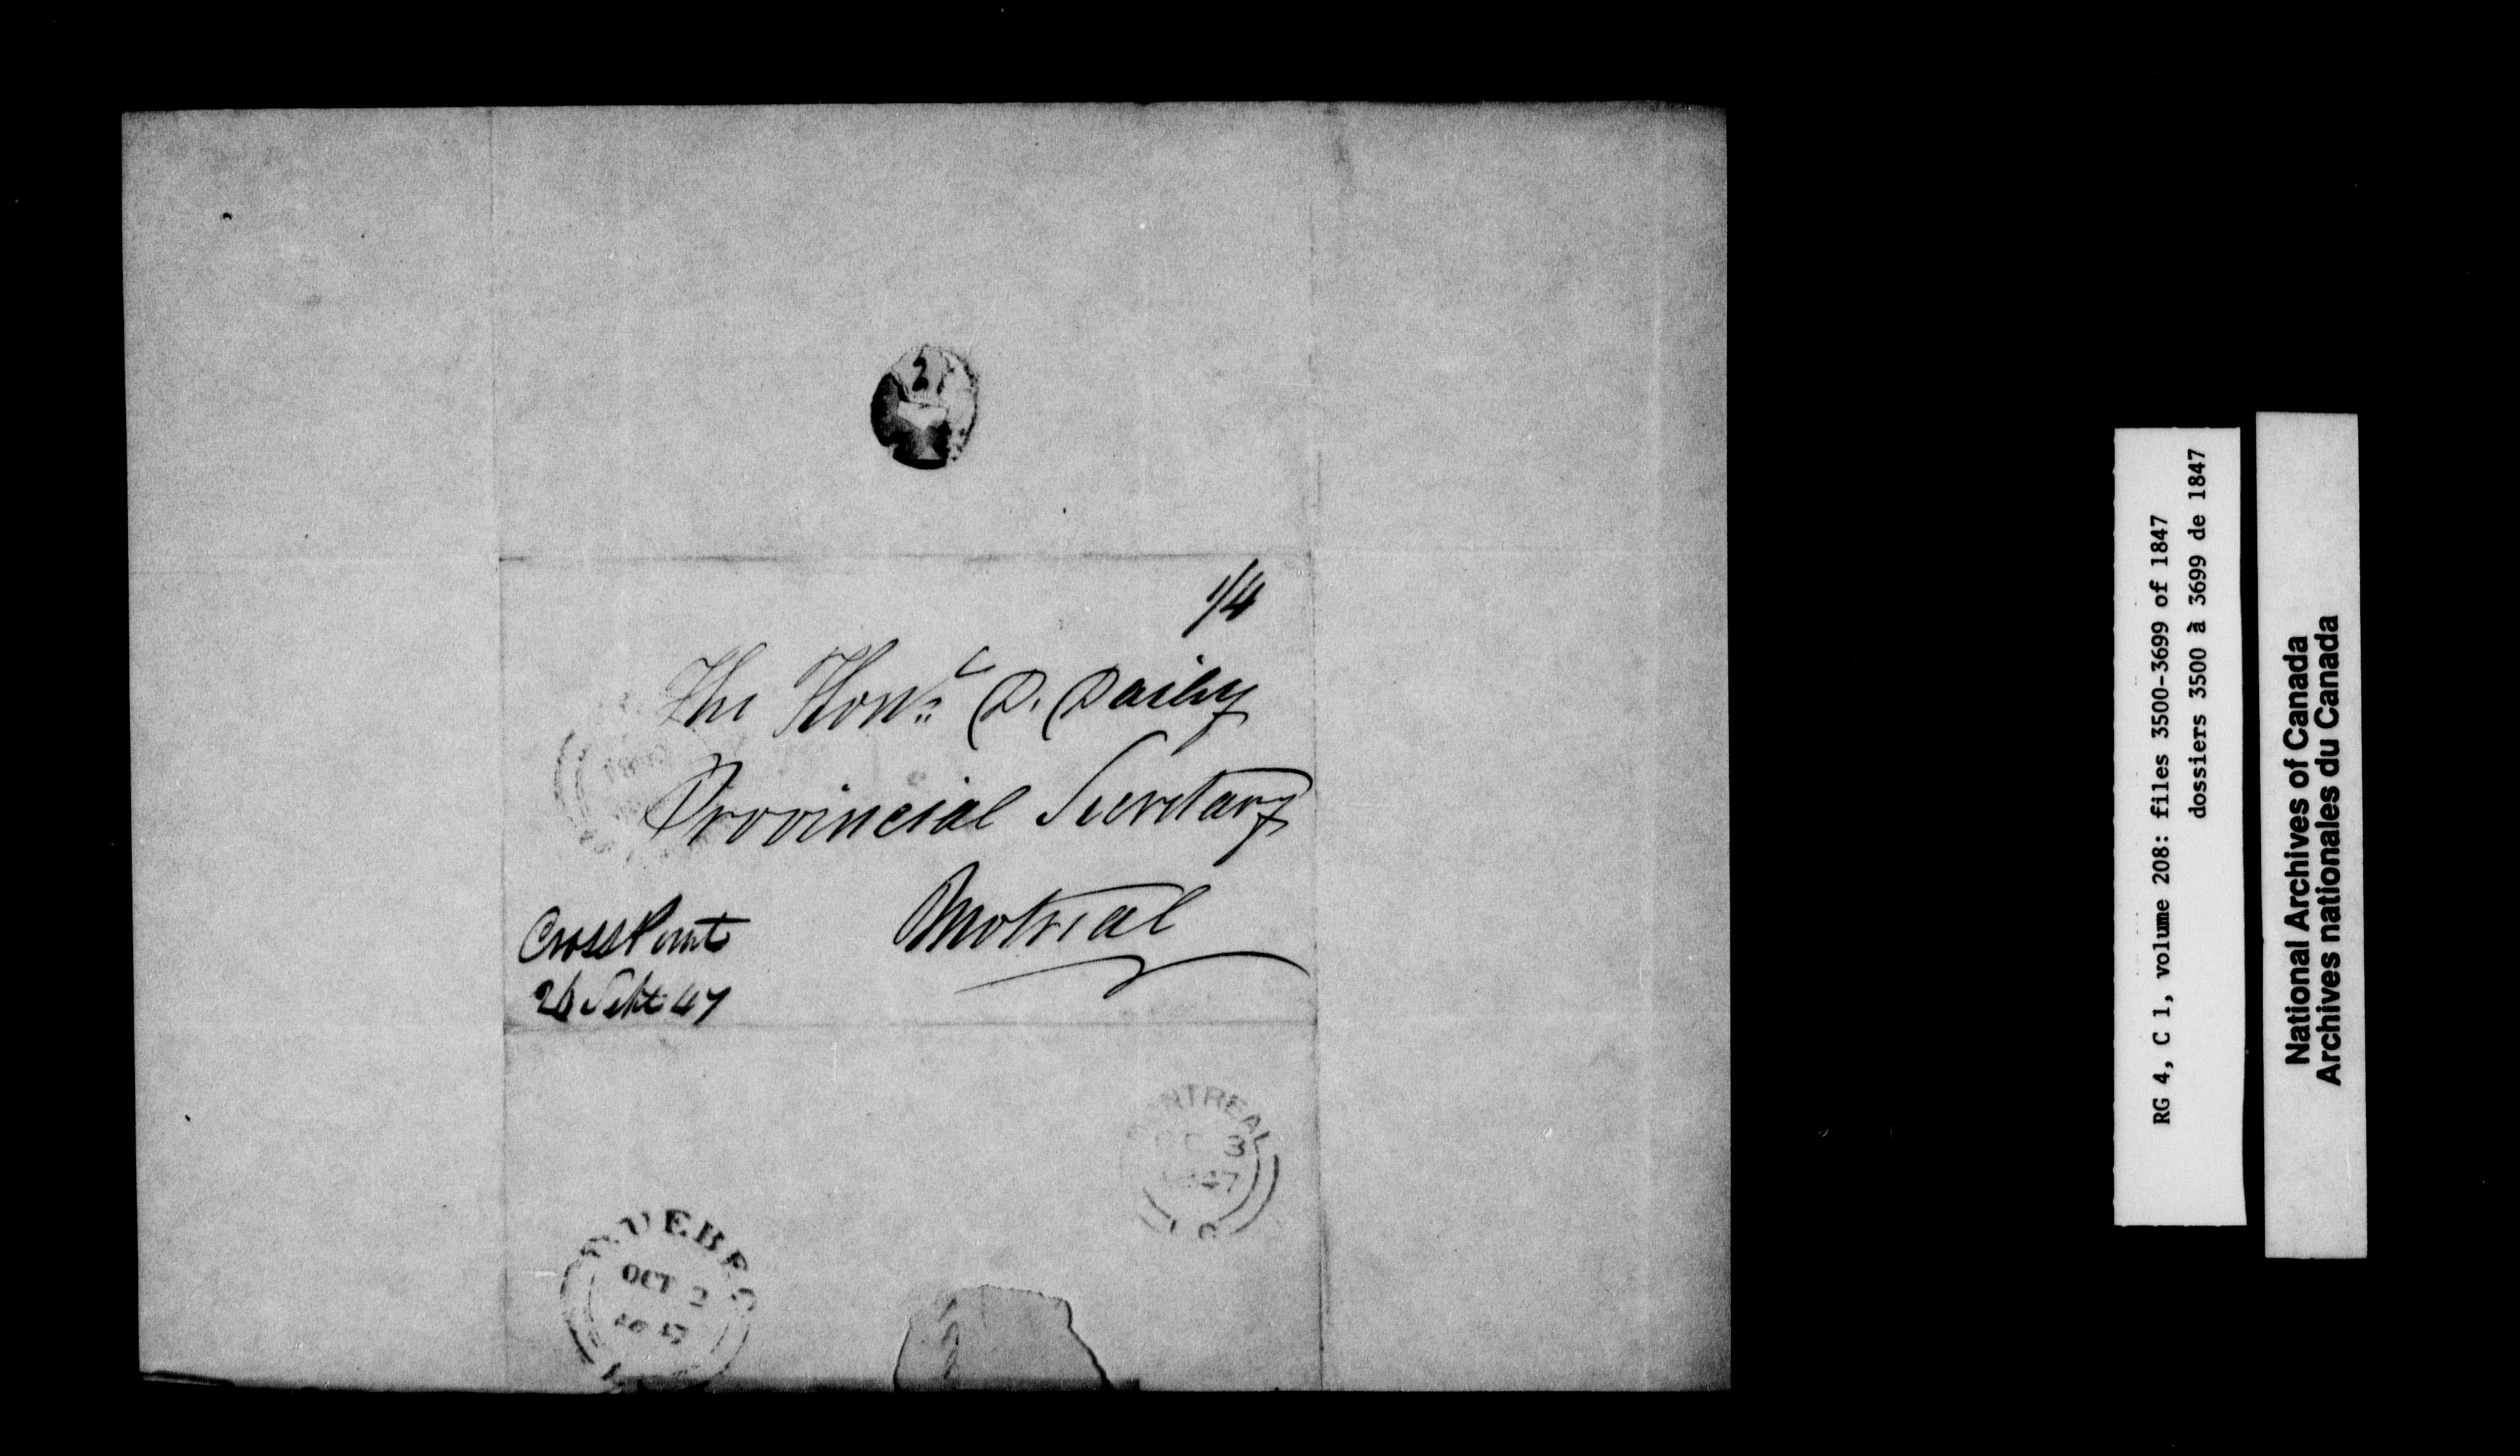 1/4
The Honle D. Daily
Provincial Secretary
Motreal
Cross Point
26 Sept 47
MONTREAL
OC 3
1847
QUEBEC
OCT 2
1847
RG 4, C 1, volume 208: files 3500-3699 of 1847
dossiers 3500 à 3699 de 1847
National Archives of Canada
Archives nationales du Canada